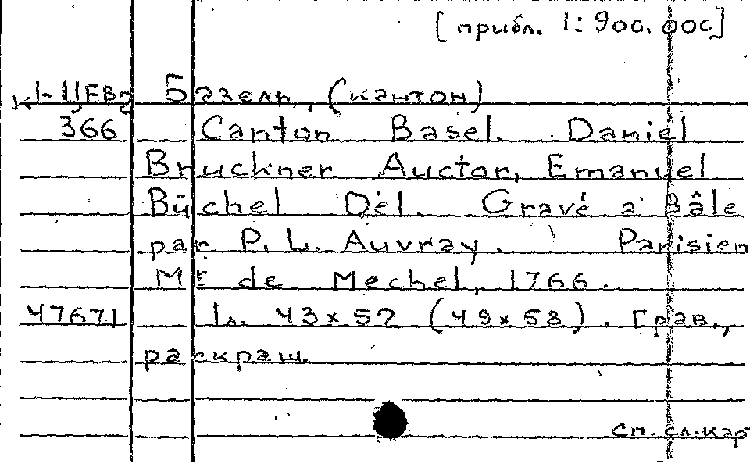 [прибл. 1:900.000]
Базель, (кантон)
366 Canton Basel. Daniel
Bruckner Auctor, Emanuel
Büchel Del. Gravé a Bâle
par P. L. Auvray. Parisien
Mr de Mechel, 1766.
47671 1л. 43x52 (49x58). Грав.,
раскраш
см. сл. кар